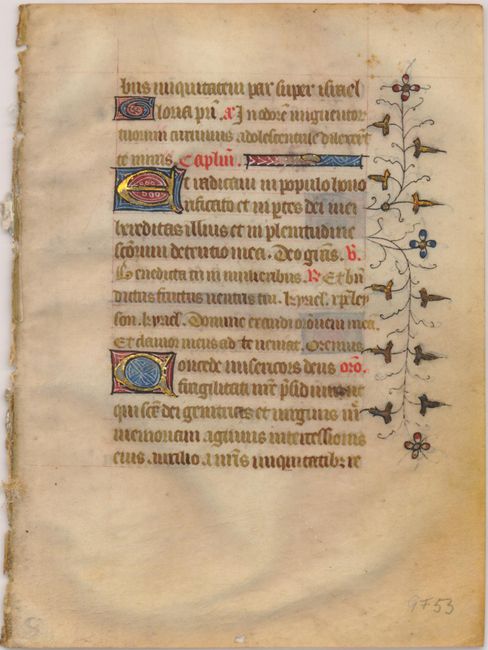 bus iniquitatem pax super israel
Gloria pri. a. In odorē unguentor
tuorum currimus adolescentule dilexerūt
te nimis. Capitlm.
Et radicaui in populo hono
rificato et in ptes dei mei
hereditas illius et in plenitudine
scōrum detentio mea. Deo grās. V.
Benedicta tu in mulieribus. R. Et bn̄
dictus fructus uentris tui. kyriel. xp̄eley
son. kyriel. Domine exaudi orōnem meā.
Et clamor meus ad te ueniat. Oremus
Concede misericors deus orō.
fragilitati nr̄e p̄sidium ut
qui scē dei genitricis et uirginis m̄
memoriam agimus intercessionis
eius auxilio a nr̄is iniquitatib re
9F53